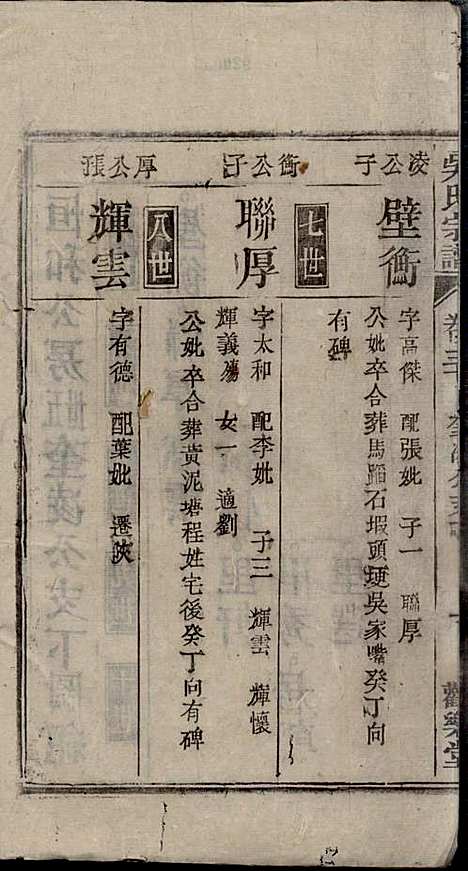 吳氏宗譜
卷三
觀樂堂
凌公子
璧衡
字高傑 配張妣 子一 聯厚
公妣卒合葬馬蹈石塅頭埂吳家嘴癸丁向
有碑
七世
衡公子
聯厚
字太和 配李妣 子三 輝雲 輝懷
輝義殤 女一 適劉
公妣卒合葬黃泥塘程姓宅後癸丁向有碑
八世
厚公長
輝雲
字有德 配葉妣 遷陝